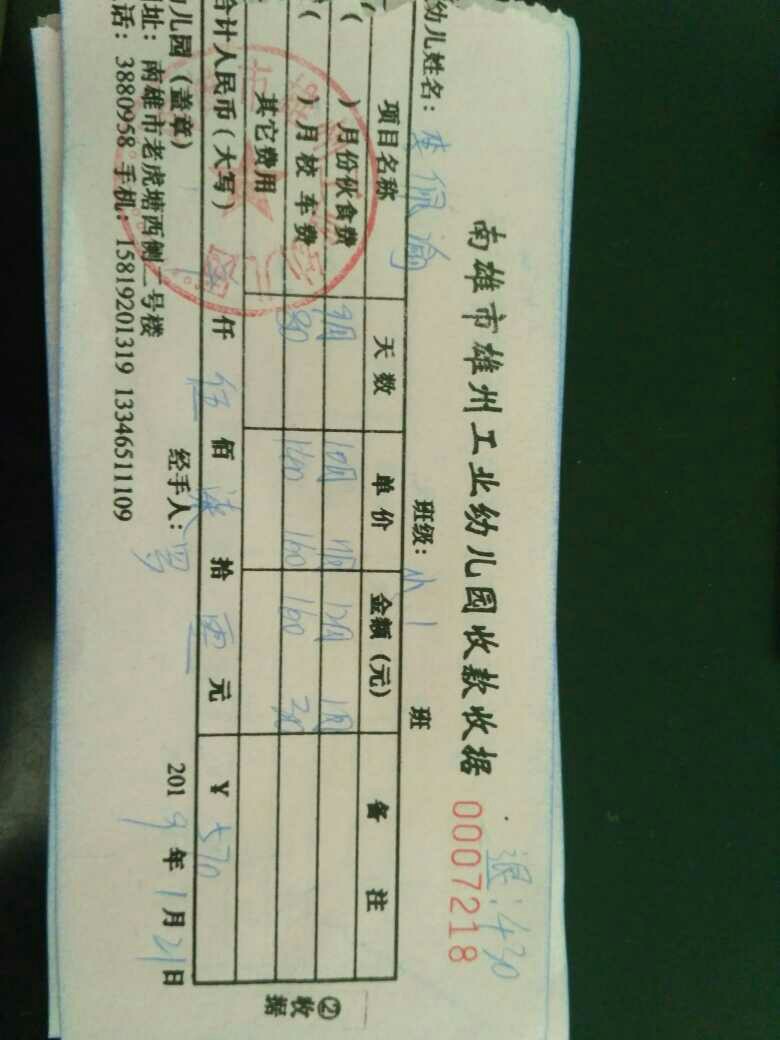 南雄市雄州工业幼儿园收款收据
退:430
0007218
幼儿姓名: 李佩瀚 班级: 小1 班
项目名称 天数 单价 金额(元) 备注
( )月份伙食费 9月 10月 11月 12月 1月
( )月校车费 80 140 160 160 30
其它费用
合计人民币(大写) 仟 伍 佰 柒 拾 元 ¥ 570
幼儿园(盖章) 经手人: 罗 2019年1月21日
址: 南雄市老虎塘西侧二号楼
话: 3880958 手机: 15819201319 13346511109
②收据